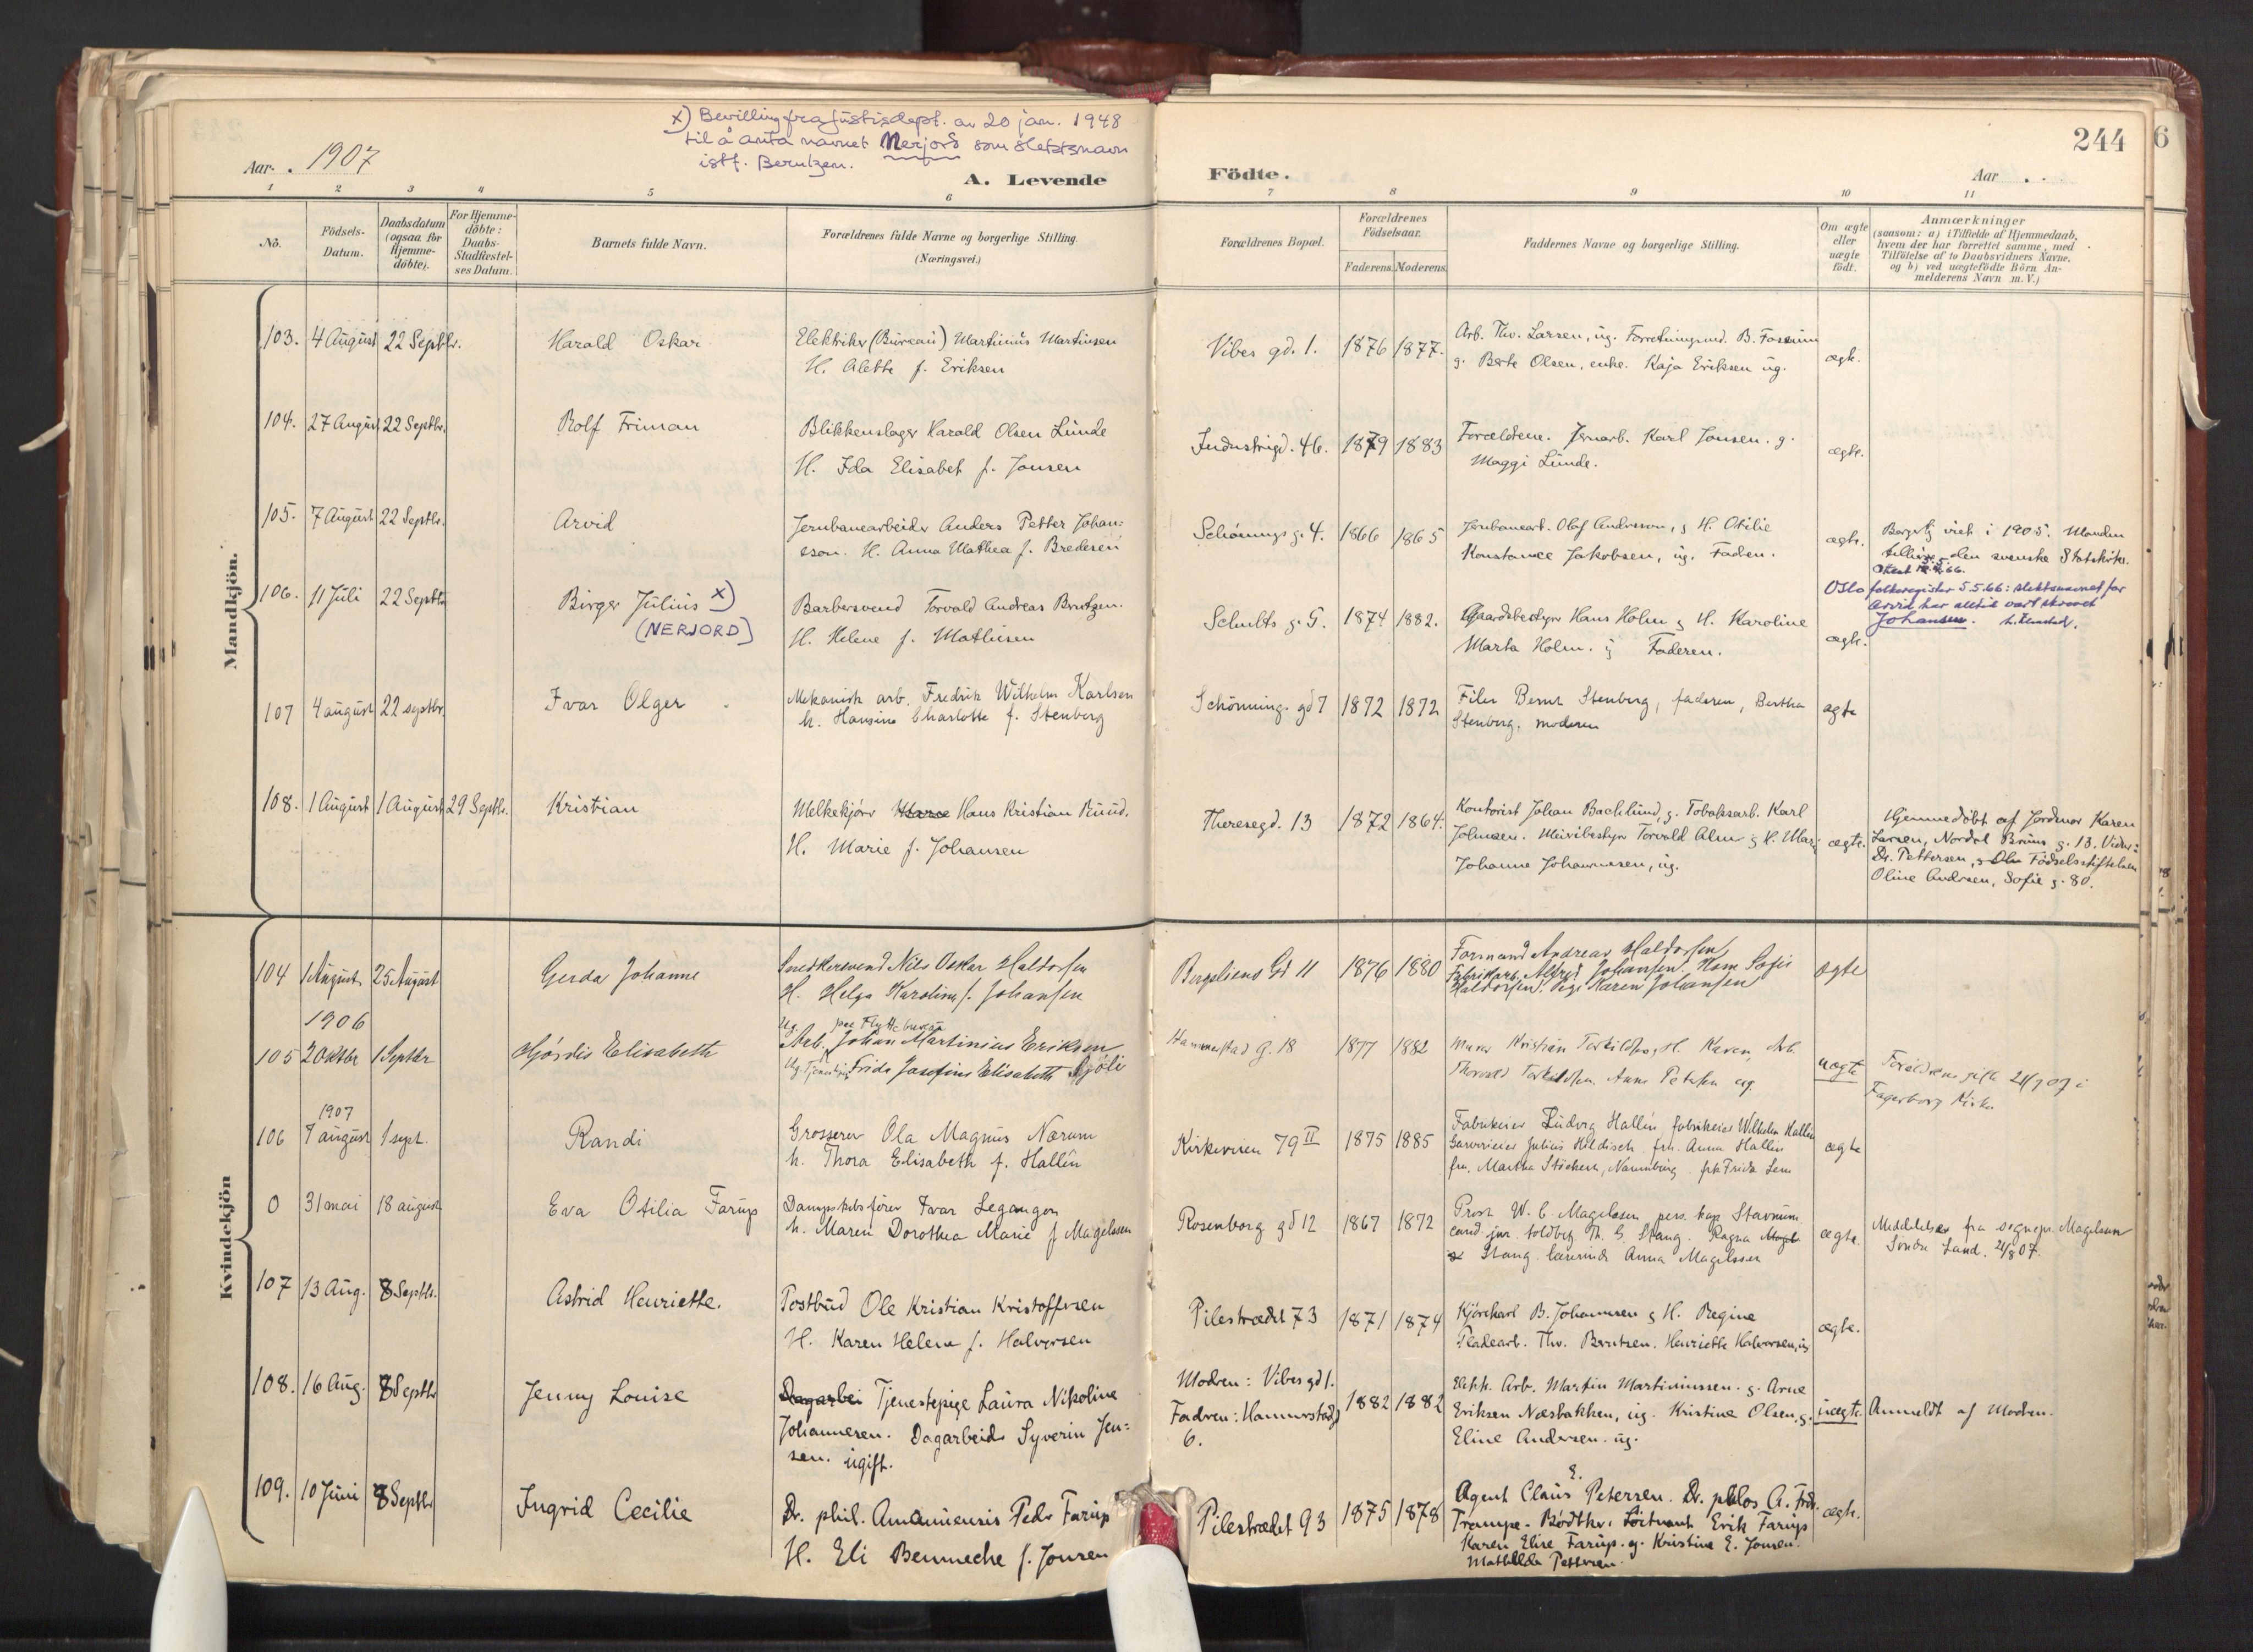 x) Bevilling fra Justisdept. av 20 jan. 1948
til å anta navnet Nerjord som slektsnavn
istf. Berntzen.
244
6
Aar. 1907
A. Levende
Födte.
Aar
1 2 3 4 5 6 7 8 9 10 11
No.
Födsels-
Datum.
Daabsdatum
(ogsaa for
Hjemme-
döbte).
For Hjemme-
döbte:
Daabs-
Stadfæstel-
ses Datum.
Barnets fulde Navn.
Forældrenes fulde Navne og borgerlige Stilling.
(Næringsvei.)
Forældrenes Bopæl.
Forældrenes
Födselsaar.
Faderens. Moderens.
Faddernes Navne og borgerlige Stilling.
Om ægte
eller
uægte
födt.
Anmærkninger
(saasom: a) i Tilfælde af Hjemmedaab,
hvem der har forrettet samme, med
Tilföielse af to Daabsvidners Navne,
og b) ved uægtefödte Börn An-
melderens Navn m. V.)
Mandkjön.
103. 4 August 22 Septbr. Harald Oskar
Elektriker (Bureau) Martinius Martinsen
H. Alette f. Eriksen
Vibes gd. 1. 1876 1877.
Arb. Thv. Larsen, ug. Forretningsmd. B. Fossum
g. Berte Olsen, enke. Kaja Eriksen ug.
ægte.
104. 27 August 22 Septbr. Rolf Friman
Blikkenslager Harald Olsen Lunde
H. Ida Elisabet f. Jonsen
Industrigd. 46. 1879 1883
Forældrene. Jernarb. Karl Jonsen. g.
Maggi Lunde.
ægte.
105. 7 August 22 Septbr. Arvid
Jernbanearbeider Anders Petter Johan-
sson. H. Anna Mathea f. Bredesen
Schönnings g. 4. 1866 1865
Jernbanearb. Olaf Andersson, g H. Otilie
Konstance Jakobsen, ug. Faderen.
ægte.
Borgerlig viet i 1905. Manden
tilhører den svenske Statskirke.
Oslo folkeregister 5.5.66: slektsnavnet for
Arvid har alltid vært skrevet
Johansen.
106. 11 Juli 22 Septbr Birger Julius x)
(NERJORD)
Barbersvend Torvald Andreas Berntzen.
H. Helene f. Mathisen
Schults g. 9. 1874 1882.
Gaardsbestyrer Hans Holm g H. Karoline
Marta Holm. ig Faderen.
ægte.
107 4 august 22 septbr. Ivar Olger
Mekanisk arb. Fredrik Wilhelm Karlsen
h. Hansine Charlotte f. Stenberg
Schönnings gd 7 1872 1872
Filer Bernt Stenberg, faderen, Bertha
Stenberg, moderen
ægte
108. 1 August 1 August 29 Septbr. Kristian
Melkekjører Hans Kristian Ruud.
H. Marie f. Johansen
Theresegd. 13 1872 1864.
Kontorist Johan Bachlund, g. Tobaksarb. Karl
Johnsen. Meieribestyrer Torvald Alm g H. Mari
Johanne Johannesen, ug.
ægte.
Hjemmedöbt af Jordmor Karen
Larsen, Nordal Bruns g. 13. Vidner:
Dr. Pettersen, Födselsstiftelsen
Oline Andersen, Sofie g. 80.
Kvindekjön
104 1 August 25 August Gerda Johanne
Snedkersvend Nils Oskar Haldorsen
H. Helga Karoline f. Johansen
Bergsliens Gd 11 1876 1880
Formand Andreas Haldorsen
Fabrikarb. Alfred Johansen. Kone Sofie
Haldorsen. Pige Karen Johansen
ægte
1906
105 2 Oktbr 1 Septbr Hjördis Elisabeth
Ug. paa Flyttebureau
Arb. Johan Martinius Eriksen
Ug. Tjenestepige Frida Josefine Elisabeth Sjöli
Hammerstad g. 18 1877 1882
Murer Kristian Torkildsen, H. Karen, Arb.
Thorvald Torkildsen. Anna Petersen ug.
uægte
Forældrene gifte 21/9 07 i
Fagerborg Kirke
1907
106 7 august 1 sept. Randi
Grosserer Ola Magnus Nærum
h. Thora Elisabeth f. Hallén
Kirkeveien 79 II 1875 1885
Fabrikeier Ludvig Hallén, fabrikeier Wilhelm Hallén
Garverieier Julius Heldisch. fru. Anna Hallén
fru. Martha Stöckert, Naumburg. frk Frida Lem
ægte
0 31 mai 18 august Eva Otilia Farup
Dampskibsfører Ivar Legangen
h. Maren Dorothea Marie f Magelssen
Rosenborg gd 12 1867 1872
Prost W. C. Magelssen, pers. kap. Stavnum
cand. jur. toldbetj. Th. S. Stang. Ragna
Stang. lærerinde Anna Magelssen
ægte.
Meddelelse fra sognepr. Magelssen
Söndre Land. 2/8 07.
107 13 Aug. 8 Septbr. Astrid Henriette.
Postbud Ole Kristian Kristoffersen
H. Karen Helene f. Halvorsen
Pilestrædet 73 1871 1874
Kjörekarl B. Johannesen g H. Regine
Pladearb. Thv. Berntsen. Henriette Halvorsen, ug
ægte.
108. 16 Aug. 8 Septbr Jenny Louise
Dagarbei Tjenestepige Laura Nikoline
Johannesen. Dagarbeider Syverin Jen-
sen. ugift.
Modren: Vibes gd 1.
Fadren: Hammerstadg
6.
1882 1882
Elekt. Arb. Martin Martiniussen. g. Arne
Eriksen Næsbakken, ug. Kristine Olsen, g.
Eline Andersen. ug.
uægte. Anmeldt af Modren.
109. 10 Juni 8 Septbr Ingrid Cecilie
Dr. phil. Amanuensis Peder Farup
H. Eli Bennecke f. Jonsen
Pilestrædet 93 1875 1878
Agent Claus E. Petersen. Dr. philos A. Fredr.
Trampe-Bödtker Löitnant Erik Farup
Karen Elise Farup. g. Kristine E. Jonsen.
Mathilde Pettersen.
ægte.